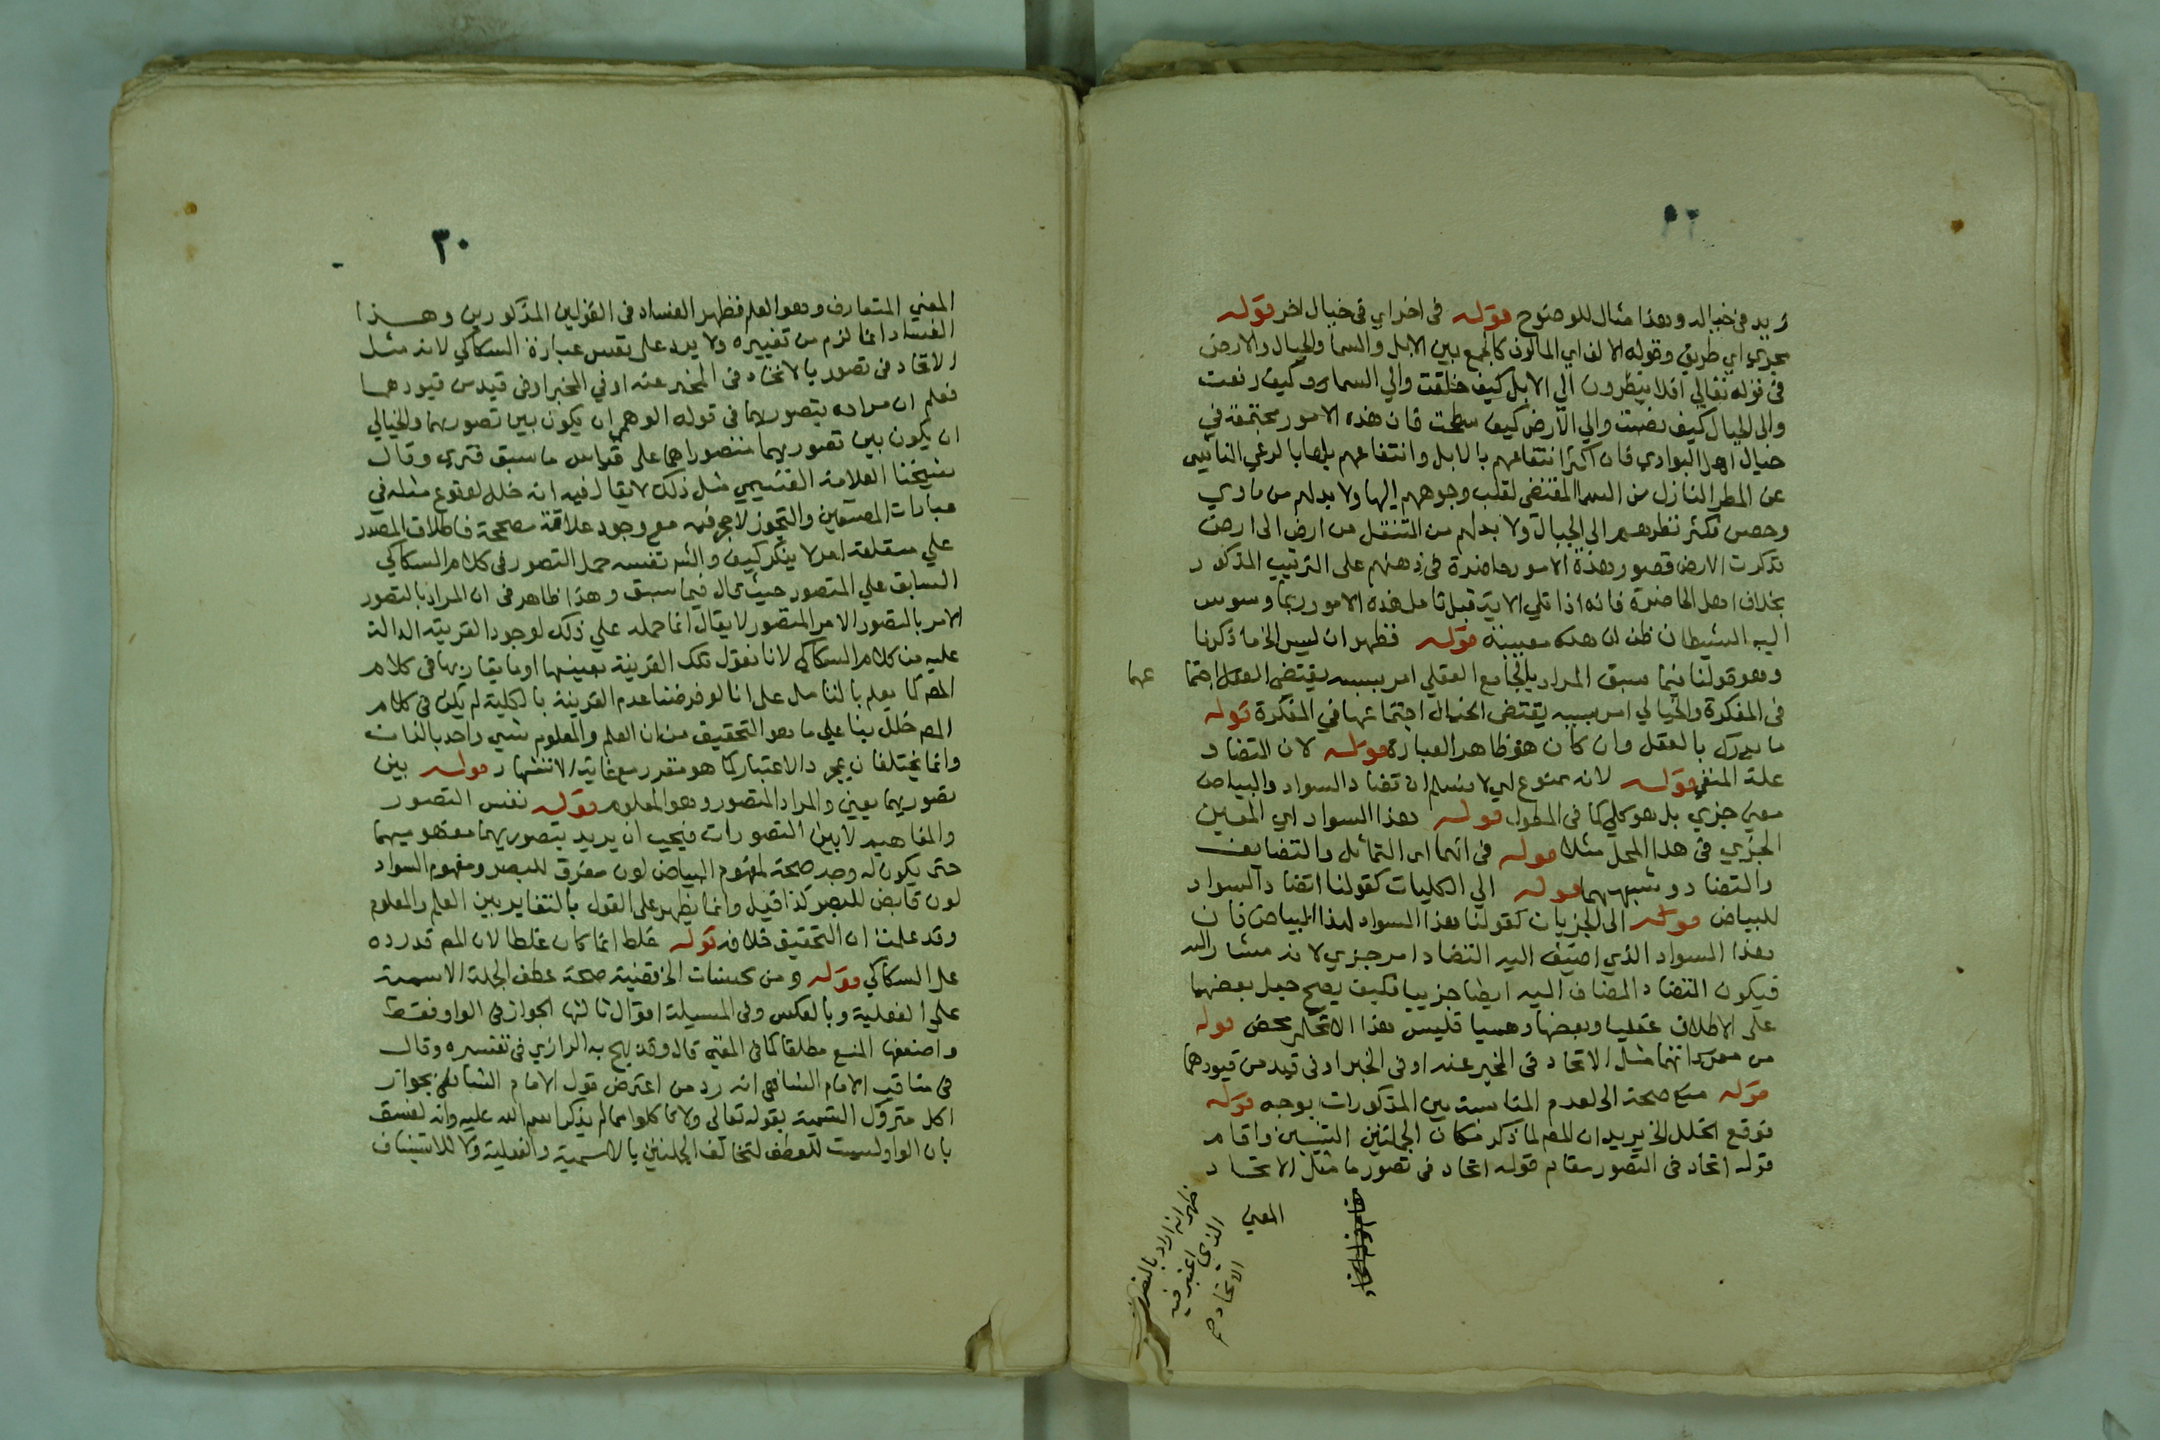 زيد في خياله وهذا مثال للوضوح قوله في اخر اي في خيال اخر قوله
مجري اي طريق وقوله الالف اي المالوف كالجمع بين الابل والسما والجبال والارض
في قوله تعالي افلا ينظرون الي الابل كيف خلقت والي السماء كيف رفعت
والى الجبال كيف نصبت والي الارض كيف سطحت فان هذه الامور مجتمعة في
خيال اهل البوادي فان اكثر انتفاعهم بالابل وانتفاعهم بها بالرعي الناشي
عن المطر النازل من السما المقتضى لقلب وجوههم إليها ولا بد لهم من ماوي
وحصن فكثر نظرهم الى الجبال ولا بد لهم من التنقل من ارض الى ارض
فذكرت الارض فصور هذه الامور حاضرة في ذهنهم على الترتيب المذكور
بخلاف اهل الحاضرة فانه اذا تلي الاية قبل تامل هذه الامور ربما وسوس
اليه الشيطان ظن ان هذه معيبة قوله فظهر ان ليس الخ ما ذكرنا
وهو قولنا فيما سبق المراد بالجامع العقلي امر بسببه يقتضى العقل اجتما عهما
في المفكرة والخيالي امر بسببه يقتضى الخيال اجتماعهما في المفكرة قوله
ما يدرك بالعقل وان كان هو ظاهر العبارة قوله لان التضاد
علة المنفي قوله لانه ممنوع اي لا نسلم ان تضاد السواد والبياض
معني جزي بل هو كلي كما في المطول قوله هذا السواد اي المعين
الجزي في هذا المحل مثلا قوله في انهما اي التماثل والتضايف
والتضاد وشبههما قوله الي الكليات كقولنا اتضاد السواد
للبياض قوله الى الجزيات كقولنا هذا السواد لهذا البياض فان
هذا السواد الذي اضيف اليه التضاد امر جزي لانه مشار اليه
فيكون التضاد المضاف اليه ايضا جزييا فكيف يصح جعل بعضها
على الاطلاق عقليا وبعضها وهميا فليس هذا الا تحكم محض قوله
من معرفاتهما مثل الاتحاد في المخبر عنه او في الخبر او في قيد من قيودهما
قوله منع صحة الى لعدم المناسبة بين المذكورات بوجه قوله
فوقع الخلل الخ يريد ان المص لما ذكر مكان الجملتين الشيئين واقام
قوله اتحاد في التصور مقام قوله اتحاد في تصور ما مثل الاتحاد
المعني
ظهر انه اراد بالتصور
الذي اعتبر فيه
الاتحاد صح
٣٠
المعني المتعارف وهو العلم فظهر الفساد في القولين المذكورين وهذا
الفساد انما لزم من تغييره ولا يرد على نفس عبارة السكاكي لانه مثل
الاتحاد في تصور بالاتحاد في المخبر عنه او في الخبر او في قيد من قيودهما
فعلم ان مراده بتصورهما في قوله الوهمي ان يكون بين تصوريهما والخيالي
ان يكون بين تصوريهما متصوراهما على قياس ما سبق فتري وقال
شيخنا العلامة الغنيمي مثل ذلك لا يقال فيه انه خلل لوقوع مثله في
عبارات المصنفين والتجوز لا حجر فيه مع وجود علاقة مصححة فاطلاق المصدر
علي متعلقه امر لا ينكر كيف والش نفسه حمل التصور في كلام السكاكي
السابق علي المتصور حيث قال فيما سبق وهذا ظاهر في ان المراد بالتصور
الامر بالتصور الامر المتصور لا يقال انما حمله علي ذلك لوجود القرينة الدالة
عليه من كلام السكاكي لانا نقول تلك القرينة بعينها او ما يقاربها في كلام
المص كما يعلم بالتامل على انا لو فرضنا عدم القرينة بالكلية لم يكن في كلام
المص خلل بنا علي ما هو التحقيق من ان العلم والمعلوم شي واحد بالذات
وانما يختلفان بمجرد الاعتبار كما هو مقرر مع غاية الاشتهار قوله بين
تصوريهما يعني والمراد المتصور وهو المعلوم قوله نفس التصور
والمفاهيم لا بين التصورات فيجب ان يريد بتصوريهما مفهوميهما
حتى يكون له وجه صحة لمفهوم البياض لون مفرق للبصر ومفهوم السواد
لون قابض للبصر كذا قيل وانما يظهر على القول بالتغاير بين العلم والمعلوم
وقد علمت ان التحقيق خلافه قوله غلط انما كان غلطا لان المص قد رده
على السكاكي قوله ومن محسنات الخ قضية صحة عطف الجملة الاسمية
على الفعلية وبالعكس وفي المسيلة اقوال ثالثها الجواز في الواو فقط
واضعفها المنع مطلقا كما في المغني قال وقد لهج به الرازي في تفسيره وقال
في مناقب الامام الشافعي انه رد من اعترض قول الامام الشافعي بجواز
اكل متروك التسمية بقوله تعالى ولا تاكلوا مما لم يذكر اسم الله عليه وانه لفسق
بان الواو ليست للعطف لتخالف الجملتين بالاسمية والفعلية ولا للاستيناف